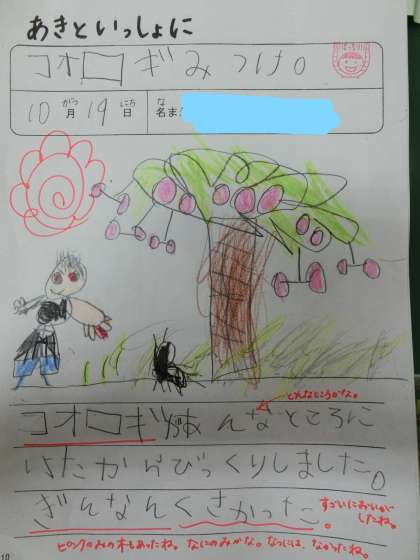 あきといっしょに
コオロギみつけ。
10月がつ19日にち 名なま
どんなところかな。
コオロギがあんなところに
いたからびっくりしました。
ぎんなんくさかった。
すごいにおいが
したね。
ピンクのみの木もあったね。なにのみかな。なつには、なかったね。
10